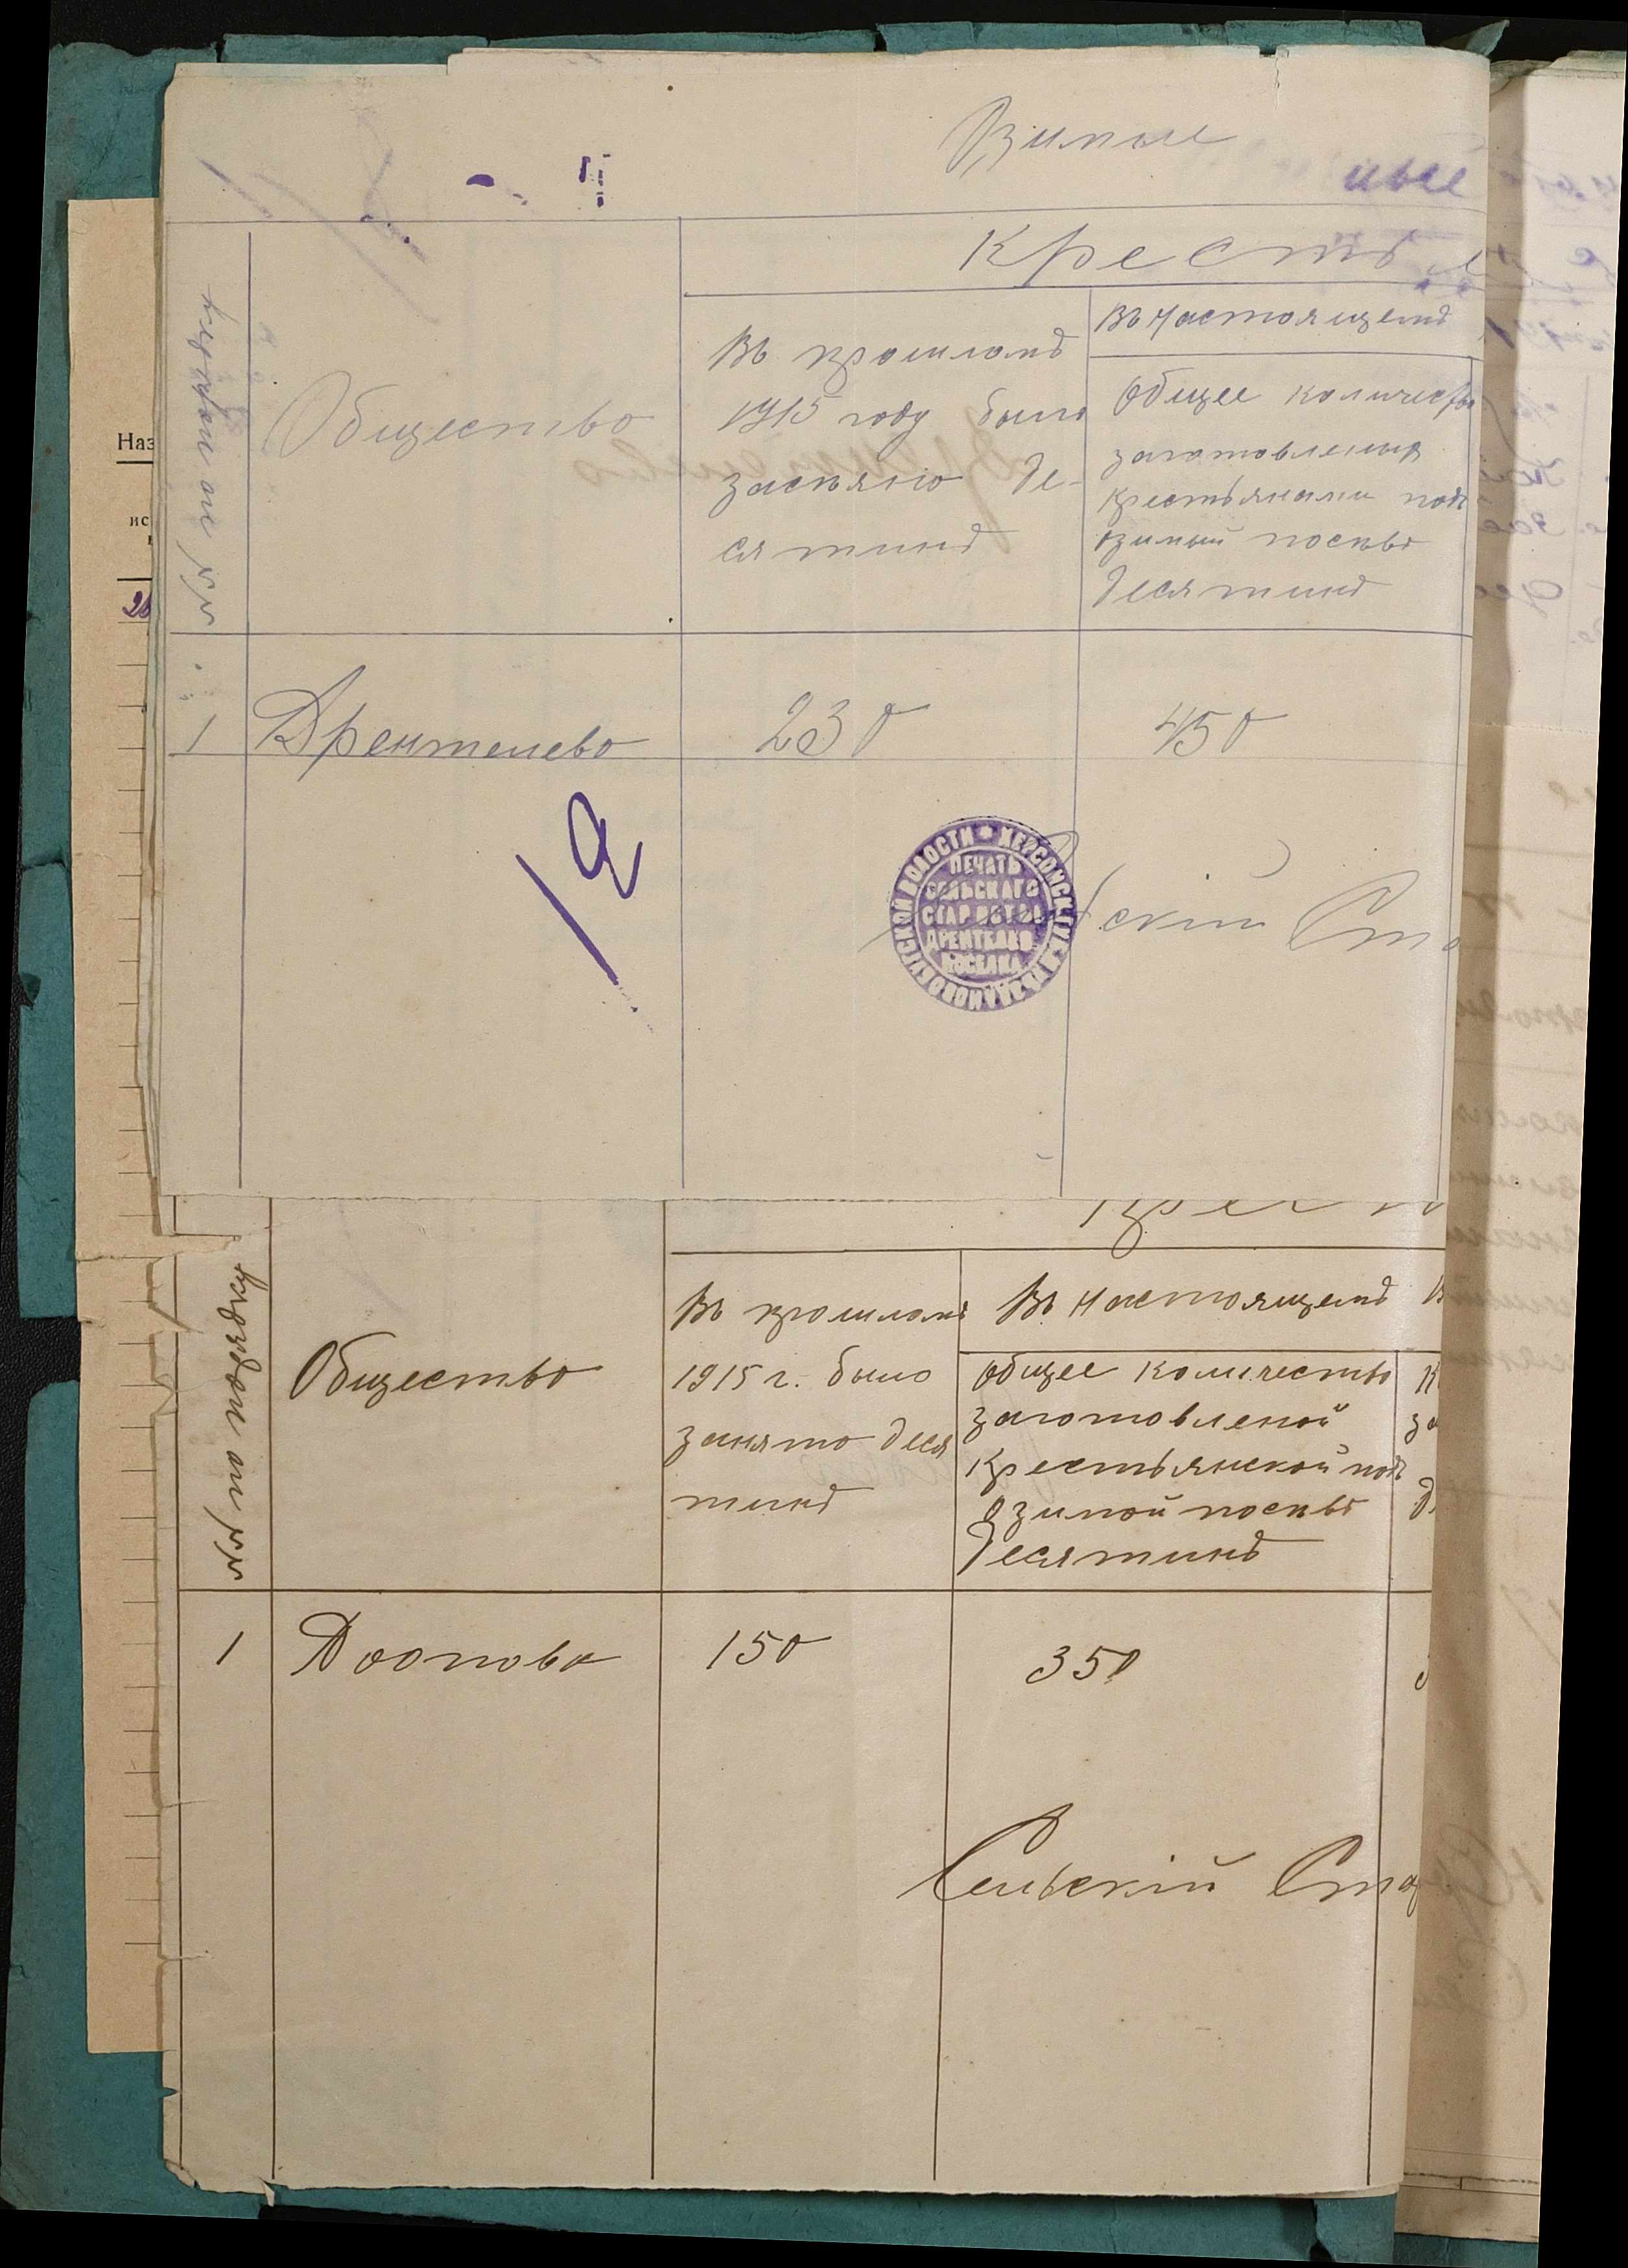 Озимые
ные
Кресть
№№ по порядку
Общество
Въ прошломъ
1915 году было
засѣяно де-
сятинъ
Въ настоящемъ
Общее количество
заготовления
крестьянами подъ
озимый посѣвъ
десятинъ
1 Дрентелево 230 450
12
ХЕРСОНСК
ВОЛОСТИ
ПЕЧАТЬ
СЕЛЬСКАГО
СТАРОСТЫ
ПОСЕЛКА
скій Ста
Наз
ис
26
Крест
№№ по порядку
Общество
Въ прошломъ
1915 г. было
занято деся
тинъ
Въ настоящемъ
Общее количество
заготовленой
крестьянской подъ
озимой посѣвъ
десятинъ
1 150 350
Сельскій Стар